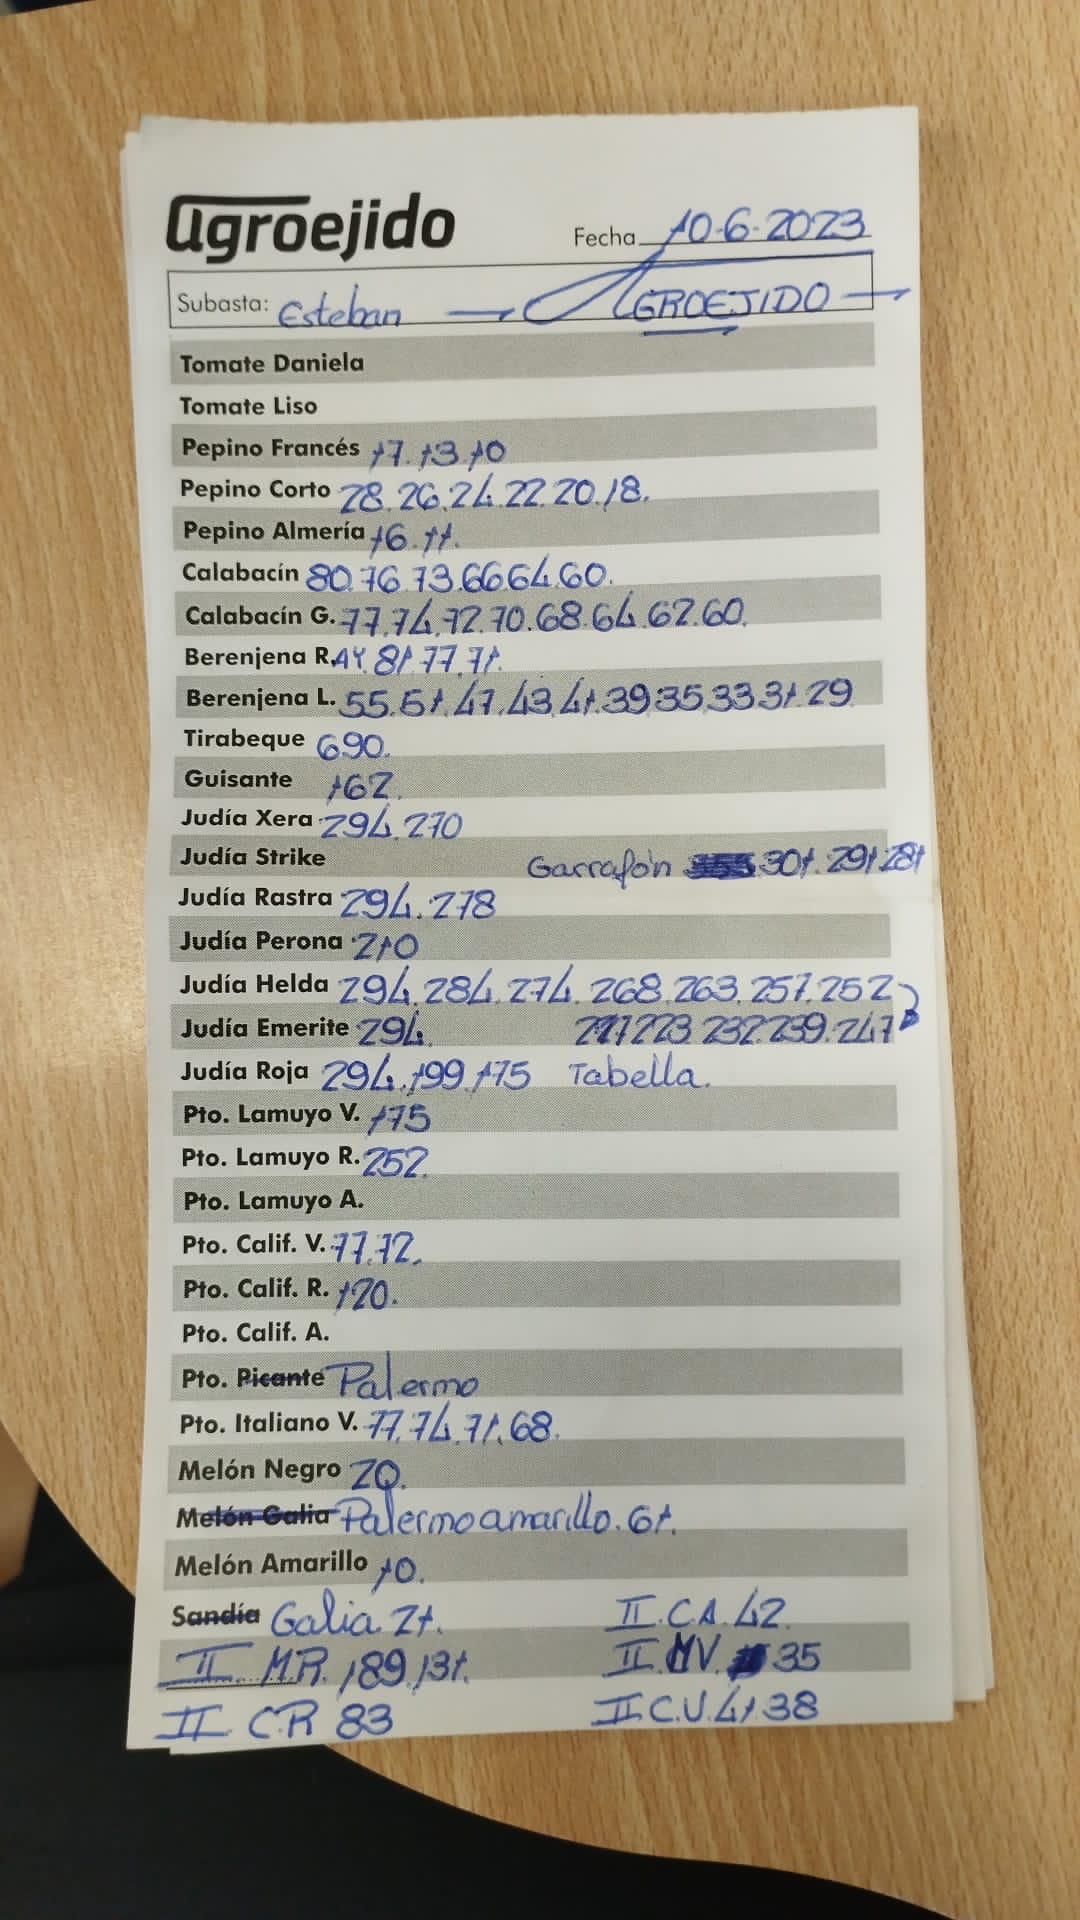 agroejido Fecha 10-6-2023
Subasta: Esteban → AGROEJIDO
Tomate Daniela
Tomate Liso
Pepino Francés 17.13.10
Pepino Corto 28.26.24.22.20.18.
Pepino Almería 16.11.
Calabacín 80.76.73.66.64.60.
Calabacín G. 77.74.72.70.68.64.62.60.
Berenjena R.AY. 81.77.71.
Berenjena L. 55.51.47.43.41.39.35.33.31.29
Tirabeque 690.
Guisante 162.
Judía Xera 294.270
Judía Strike Garrafón 301.291.281
Judía Rastra 294.278
Judía Perona 210
Judía Helda 294.284.274.268.263.257.252
Judía Emerite 294. 223.232.239.247
Judía Roja 294.199.175 Tabella.
Pto. Lamuyo V. 175
Pto. Lamuyo R. 252.
Pto. Lamuyo A.
Pto. Calif. V. 77.72.
Pto. Calif. R. 120.
Pto. Calif. A.
Pto. Picante Palermo
Pto. Italiano V. 77.74.71.68.
Melón Negro 20.
Melón Galia Palermo amarillo. 61.
Melón Amarillo 10.
Sandía Galia 21. II.C.A. 42.
II M.R. 189.131. II.MV. 35
II C.R 83 II.C.V. 41 38